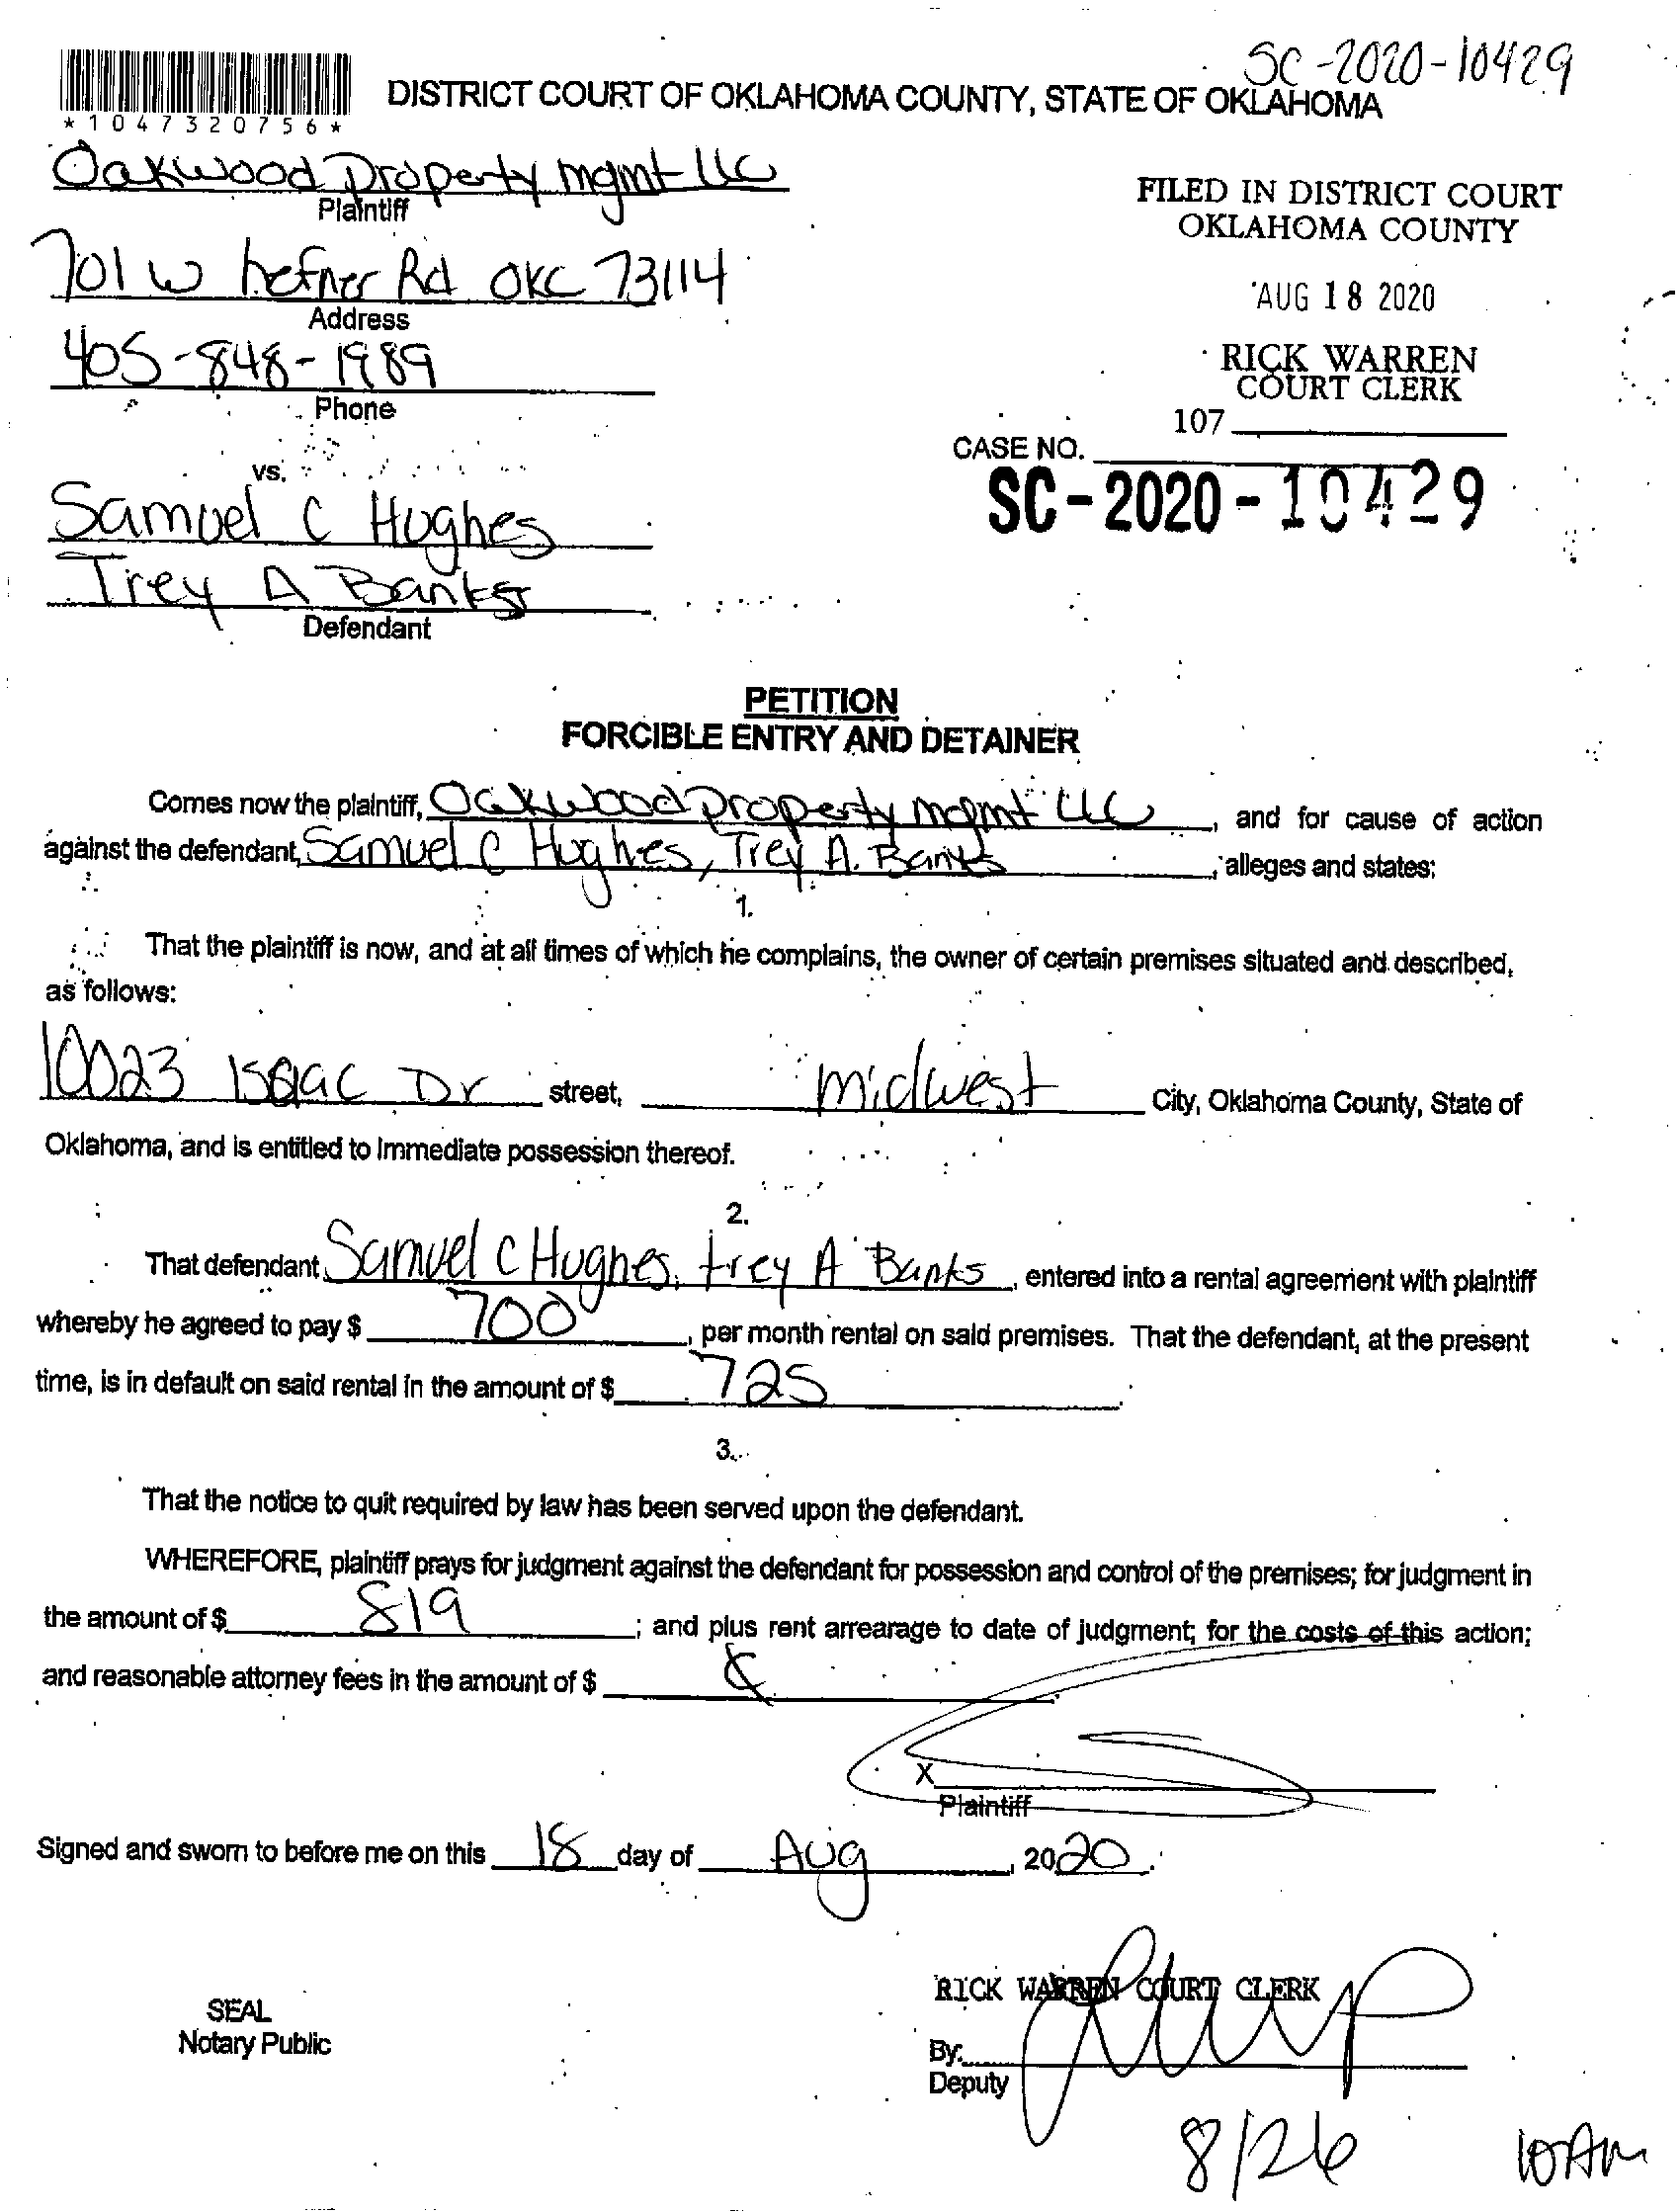 SC-2020-10429
DISTRICT COURT OF OKLAHOMA COUNTY, STATE OF OKLAHOMA
*1047320756*
Oakwood Property mgmt llc
Plaintiff
FILED IN DISTRICT COURT
OKLAHOMA COUNTY
701 w hefner Rd OKC 73114
Address
AUG 18 2020
405-848-1989
Phone
RICK WARREN
COURT CLERK
107
CASE NO.
SC-2020-10429
vs.
Samuel C Hughes
Trey A Banks
Defendant
PETITION
FORCIBLE ENTRY AND DETAINER
Comes now the plaintiff, Oakwood Property mgmt LLC, and for cause of action
against the defendant, Samuel C Hughes, Trey A. Banks, alleges and states;
1.
That the plaintiff is now, and at all times of which he complains, the owner of certain premises situated and described,
as follows:
10023 Isaac Dr street, midwest City, Oklahoma County, State of
Oklahoma, and is entitled to Immediate possession thereof.
2.
That defendant, Samuel C Hughes, trey A Banks, entered into a rental agreement with plaintiff
whereby he agreed to pay $ 700, per month rental on said premises. That the defendant, at the present
time, is in default on said rental in the amount of $ 725.
3.
That the notice to quit required by law has been served upon the defendant.
WHEREFORE, plaintiff prays for judgment against the defendant for possession and control of the premises; for judgment in
the amount of $ 819; and plus rent arrearage to date of judgment; for the costs of this action;
and reasonable attorney fees in the amount of $
X
Plaintiff
Signed and sworn to before me on this 18 day of Aug, 2020.
RICK WARREN COURT CLERK
SEAL
Notary Public
By:
Deputy
8/26 10 Am